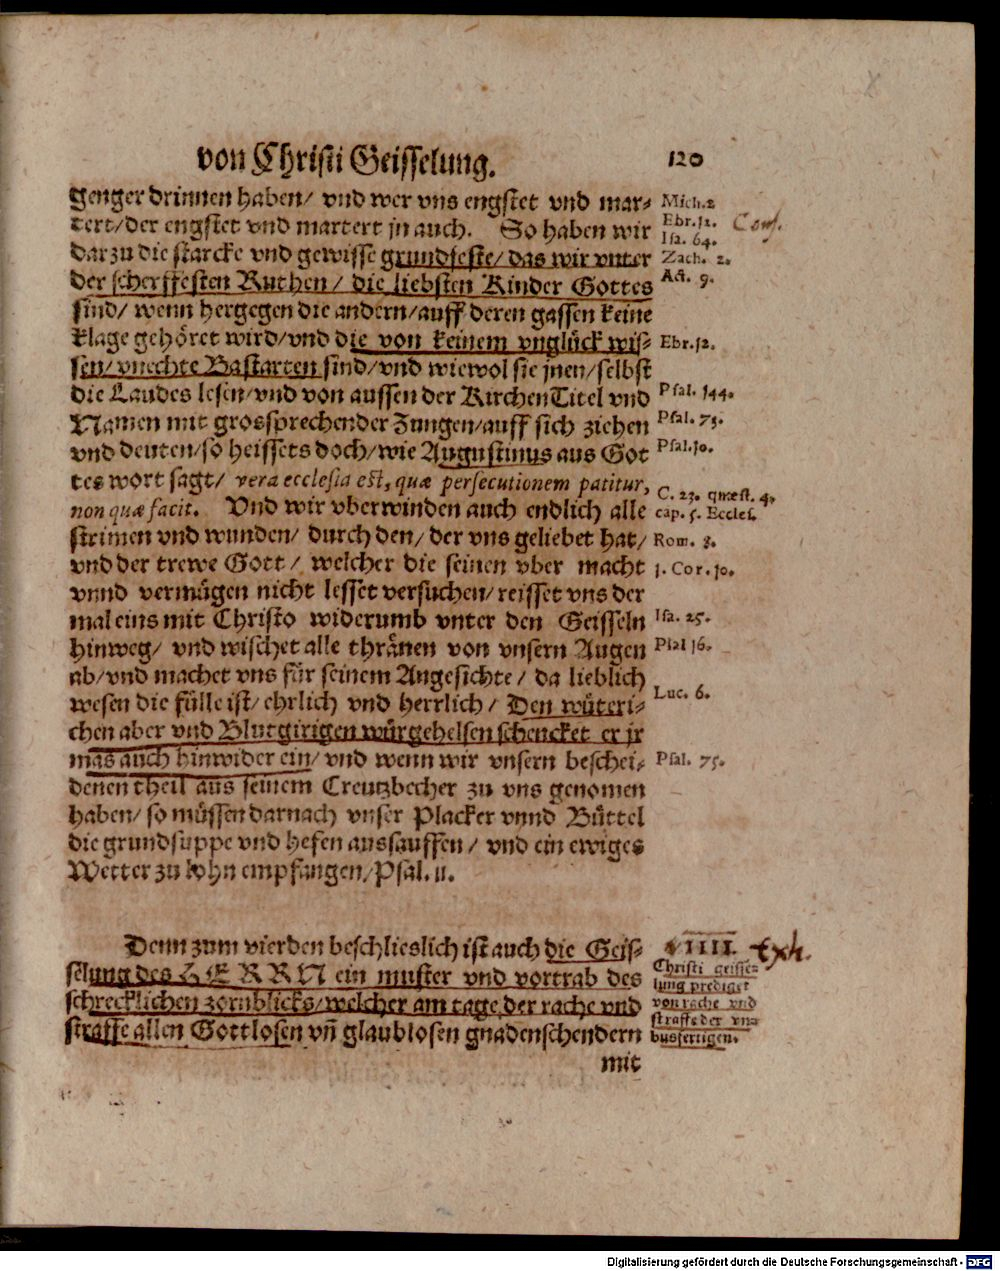 von Christi Geisselung. 120
genger drinnen haben/ vnd wer vns engstet vnd mar-
tert/ der engstet vnd martert jn auch. So haben wir
darzu die starcke vnd gewisse grundfeste/ das wir vnter
der scherffesten Ruthen/ die liebsten Kinder Gottes
sind/ wenn hergegen die andern/ auff deren gassen keine
klage gehöret wird/ vnd die von keinem vnglück wis-
sen/ vnechte Bastarten sind/ vnd wiewol sie jnen/ selbst
die Laudes lesen/ vnd von aussen der KirchenTitel vnd
Namen mit grossprechender Zungen/ auff sich ziehen
vnd deuten/ so heissets doch/ wie Augustinus aus Got
tes wort sagt/ vera ecclesia est, quæ persecutionem patitur,
non quæ facit. Vnd wir vberwinden auch endlich alle
striemen vnd wunden/ durch den/ der vns geliebet hat/
vnd der trewe Gott/ welcher die seinen vber macht
vnnd vermügen nicht lesset versuchen/ reisset vns der
mal eins mit Christo widerumb vnter den Geisseln
hinweg/ vnd wischet alle thränen von vnsern Augen
ab/ vnd machet vns für seinem Angesichte/ da lieblich
wesen die fülle ist/ ehrlich vnd herrlich/ Den wüteri-
chen aber vnd Blutgirigen würgehelsen schencket er jr
mas auch hinwider ein/ vnd wenn wir vnsern beschei-
denen theil aus seinem Creutzbecher zu vns genomen
haben/ so müssen darnach vnser Placker vnnd Büttel
die grundsuppe vnd hefen aussauffen/ vnd ein ewiges
Wetter zu lohn empfangen/ Psal. 11.
Mich. 2
Ebr. 12.
Isa. 64.
Zach. 2.
Act. 9.
Conf.
Ebr. 12.
Psal. 144.
Psal. 73.
Psal. 10.
C. 23. quæst. 4.
cap. 5. Eccles.
Rom. 8.
1. Cor. 10.
Isa. 25.
Psal 16.
Luc. 6.
Psal. 75.
Denn zum vierden beschlieslich ist auch die Geis-
selung des HERRN ein muster vnd vortrab des
schrecklichen zornblicks/ welcher am tage der rache vnd
straffe allen Gottlosen vñ glaublosen gnadenschendern
mit
IIII.
Christi geisse-
lung prediget
von rache vnd
straffe der vn-
busfertigen.
Digitalisierung gefördert durch die Deutsche Forschungsgemeinschaft - DFG